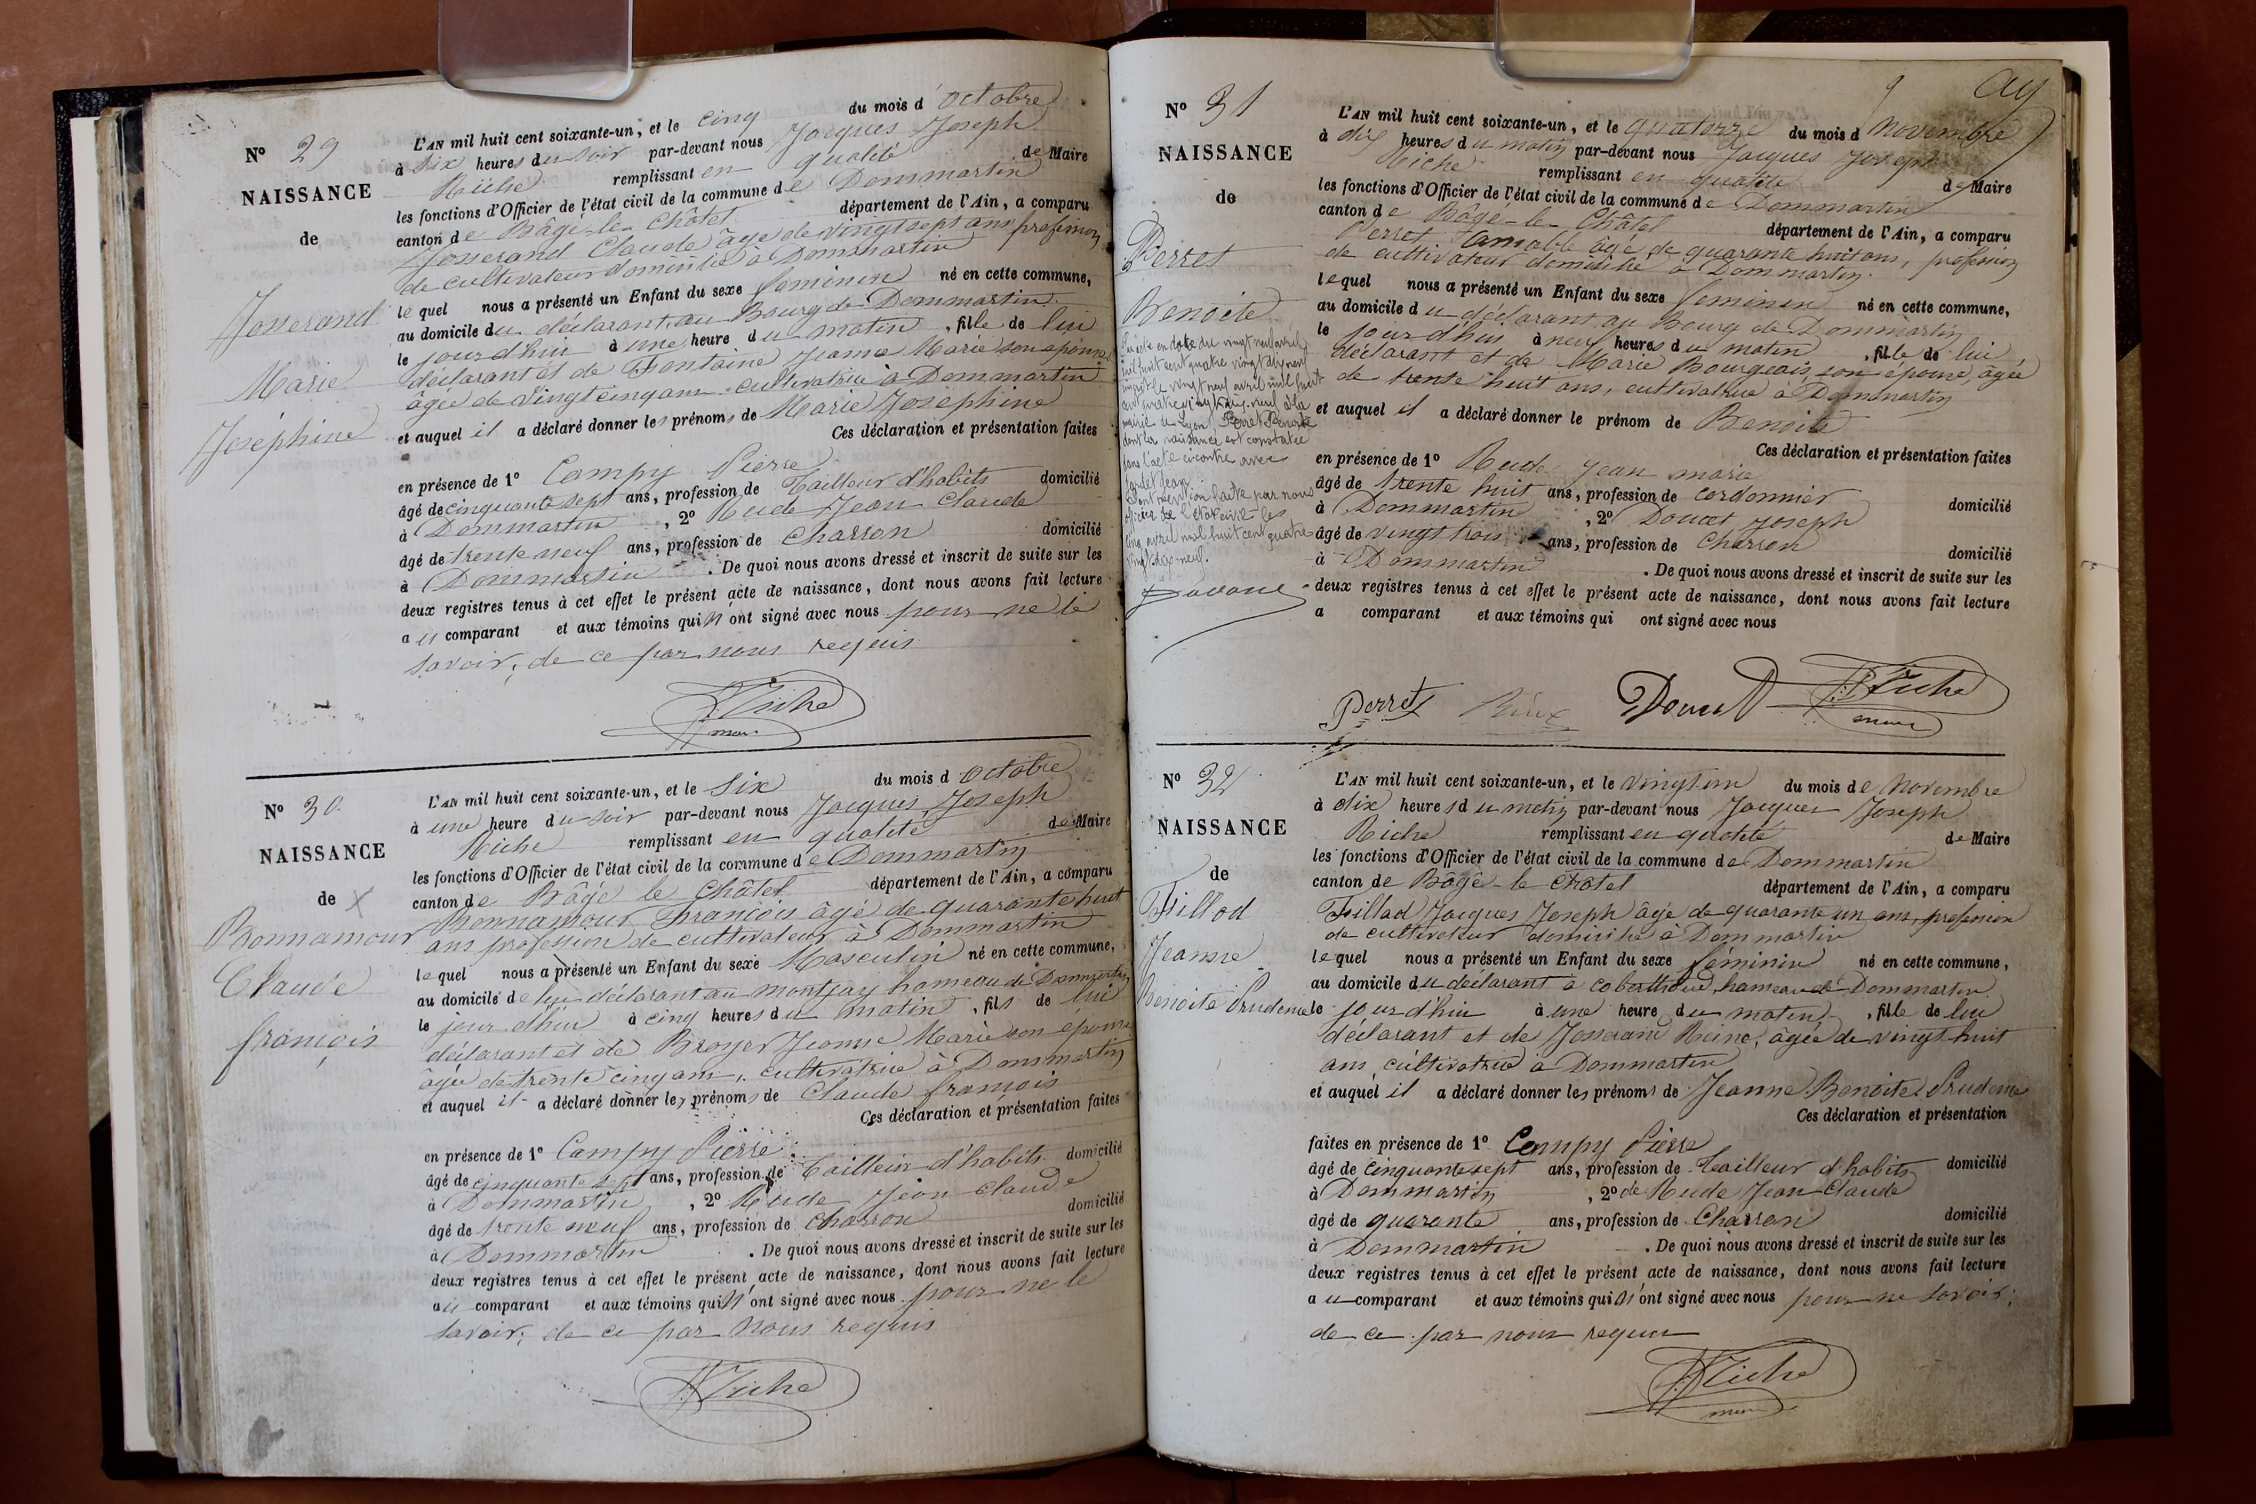 N° 29
NAISSANCE
de
Josserand
Marie
Joséphine
L'AN mil huit cent soixante-un, et le cinq du mois d'octobre
à six heures du soir par-devant nous Jacques Joseph
Riche remplissant en qualité de Maire
les fonctions d'Officier de l'état civil de la commune de Dommartin
canton de Bâgé-le-Châtel département de l'Ain, a comparu
Josserand Claude âgé de vingt sept ans profession
de cultivateur domicilié à Dommartin
lequel nous a présenté un Enfant du sexe féminin né en cette commune,
au domicile du déclarant au Bourg de Dommartin
le jourd'hui à une heure du matin, fille de lui
déclarant et de Fontaine Jeanne Marie son épouse
âgée de vingt cinq ans, cultivatrice à Dommartin
et auquel il a déclaré donner les prénoms de Marie Joséphine
Ces déclaration et présentation faites
en présence de 1° Campy Pierre
âgé de cinquante sept ans, profession de Tailleur d'habits domicilié
à Dommartin, 2° Rude Jean Claude
âgé de trente neuf ans, profession de charron domicilié
à Dommartin. De quoi nous avons dressé et inscrit de suite sur les
deux registres tenus à cet effet le présent acte de naissance, dont nous avons fait lecture
au comparant et aux témoins qui n'ont signé avec nous pour ne le
savoir, de ce par nous requis
J. Riche
maire
N° 30
NAISSANCE
de X
Bonnamour
Claude
françois
L'AN mil huit cent soixante-un, et le six du mois d'octobre
à une heure du soir par-devant nous Jacques Joseph
Riche remplissant en qualité de Maire
les fonctions d'Officier de l'état civil de la commune de Dommartin
canton de Bâgé le Châtel département de l'Ain, a comparu
Bonnamour François âgé de quarante huit
ans profession de cultivateur à Dommartin
lequel nous a présenté un Enfant du sexe Masculin né en cette commune,
au domicile de lui déclarant au montjay hameau de Dommartin
le jour d'hui à cinq heures du matin, fils de lui
déclarant et de Broyer Jeanne Marie son épouse
âgée de trente cinq ans, cultivatrice à Dommartin
et auquel il a déclaré donner les prénoms de Claude françois
Ces déclaration et présentation faites
en présence de 1° Campy Pierre
âgé de cinquante sept ans, profession de Tailleur d'habits domicilié
à Dommartin, 2° Rude Jean Claude
âgé de trente neuf ans, profession de charron domicilié
à Dommartin. De quoi nous avons dressé et inscrit de suite sur les
deux registres tenus à cet effet le présent acte de naissance, dont nous avons fait lecture
au comparant et aux témoins qui n'ont signé avec nous pour ne le
savoir; de ce par nous requis
J. Riche
N° 31
NAISSANCE
de
Perret
Benoite
vingt neuf avril
mil huit cent quatre vingt dix neuf
vingt neuf avril mil huit
cent quatre vingt dix neuf à la
mairie de Lyon, Perret Benoite
dont la naissance est constatée
dans l'acte ci contre avec
Jean
mention faite par nous
officier de l'état civil le
mil huit cent quatre
vingt dix neuf.
L'AN mil huit cent soixante-un, et le quatorze du mois d Novembre
à dix heures du matin par-devant nous Jacques Joseph
Riche remplissant en qualité de Maire
les fonctions d'Officier de l'état civil de la commune de Dommartin
canton de Bâgé-le-Châtel département de l'Ain, a comparu
Perret Aimable âgé de quarante huit ans, profession
de cultivateur domicilié à Dommartin
lequel nous a présenté un Enfant du sexe féminin né en cette commune,
au domicile du déclarant au bourg de Dommartin
le jour d'hui à neuf heures du matin, fille de lui
déclarant et de Marie Bourgeois son épouse, âgée
de trente huit ans, cultivatrice à Dommartin
et auquel il a déclaré donner le prénom de Benoite
Ces déclaration et présentation faites
en présence de 1° Rude Jean marie
âgé de trente huit ans, profession de cordonnier domicilié
à Dommartin, 2° Doucet Joseph
âgé de vingt trois ans, profession de Charron domicilié
à Dommartin. De quoi nous avons dressé et inscrit de suite sur les
deux registres tenus à cet effet le présent acte de naissance, dont nous avons fait lecture
a comparant et aux témoins qui ont signé avec nous
Perret Doucet J. Riche
maire
N° 32
NAISSANCE
de
Fillod
Jeanne
Benoite Prudence
L'AN mil huit cent soixante-un, et le vingt un du mois de Novembre
à dix heures du matin par-devant nous Jacques Joseph
Riche remplissant en qualité de Maire
les fonctions d'Officier de l'état civil de la commune de Dommartin
canton de Bâgé-le-Châtel département de l'Ain, a comparu
Fillod Jacques Joseph âgé de quarante un ans, profession
de cultivateur domicilié à Dommartin
lequel nous a présenté un Enfant du sexe féminin né en cette commune,
au domicile du déclarant à hameau de Dommartin
le jour d'hui à une heure du matin, fille de lui
déclarant et de Josserand Reine, âgée de vingt huit
ans, cultivatrice à Dommartin
et auquel il a déclaré donner les prénoms de Jeanne Benoite Prudence
Ces déclaration et présentation
faites en présence de 1° Campy Pierre
âgé de cinquante sept ans, profession de Tailleur d'habits domicilié
à Dommartin, 2° de Rude Jean Claude
âgé de quarante ans, profession de Charron domicilié
à Dommartin. De quoi nous avons dressé et inscrit de suite sur les
deux registres tenus à cet effet le présent acte de naissance, dont nous avons fait lecture
au comparant et aux témoins qui n'ont signé avec nous pour ne savoir;
de ce par nous requis
J. Riche
maire